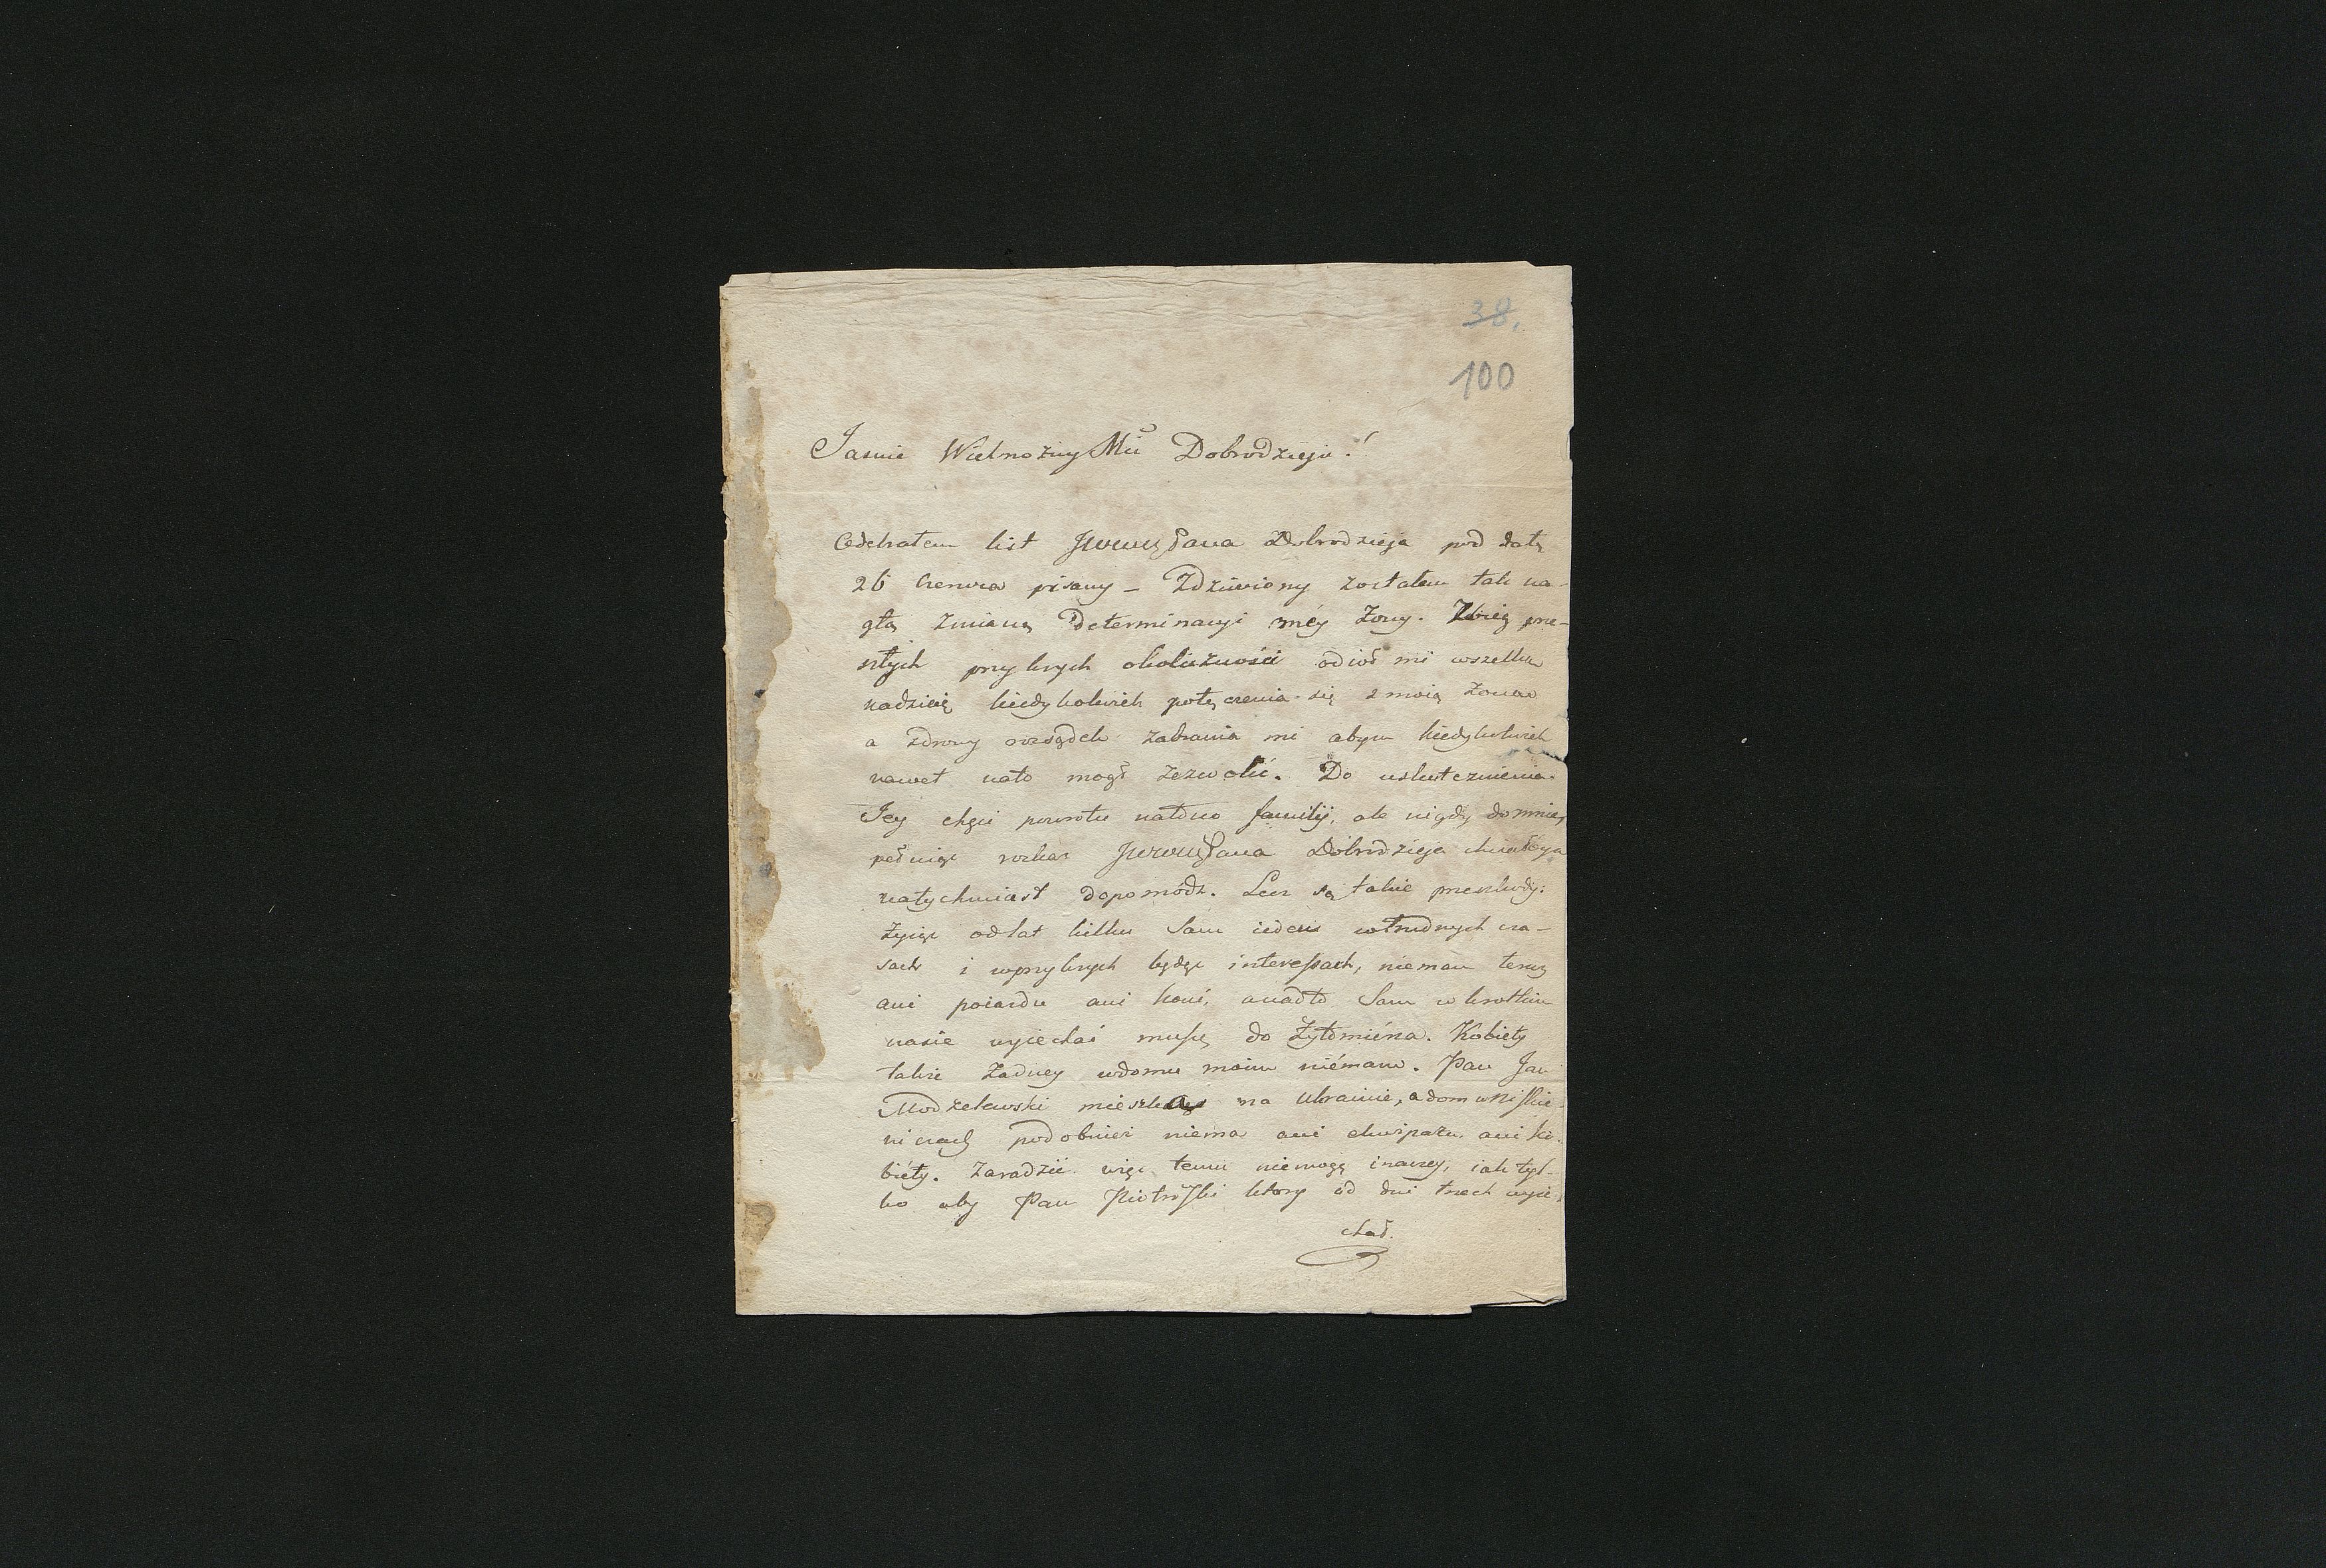 38.
100
Jasnie Wielmożny Mci Dobrodzieju!
Odebrałem list JWWMPana Dobrodzieja pod datą
26 Czerwca pisany – Zdziwiony zostałem tak na-
głą zmianą Determinacyi méy Żony. Zbieg prze-
szłych przykrych okoliczności odioł mi wszelką
nadzieię kiedykolwiek połączenia się z moią Żoną
a zdrowy rozsądek zabrania mi abym kiedykolwiek
nawet nato mogł zezwolić. Do uskutecznienia
Jey chęci powrotu nałono familij, ale nigdy domnie,
pełniąc rozkaz JWWMPana Dobrodzieja chciałbym
natychmiast dopomódz. Lecz są takie przeszkody:
Żyiąc odlat kilku Sam ieden wtrudnych cza-
sach i wprzykrych będąc interessach, niemam teraz
ani poiazdu ani koni, anadto Sam w krotkim
czasie wyiechać muszę do Żytomiérza. Kobiety
także żadney wdomu moim niémam. Pan Jan
Modzelewski mieszka na Ukrainie, a dom w
podobnież niema ani ekwipażu ani ko-
biéty. Zaradzić więc temu niemogę inaczey, iak tyl-
ko aby Pan który od dni trzech wyie-
chał.